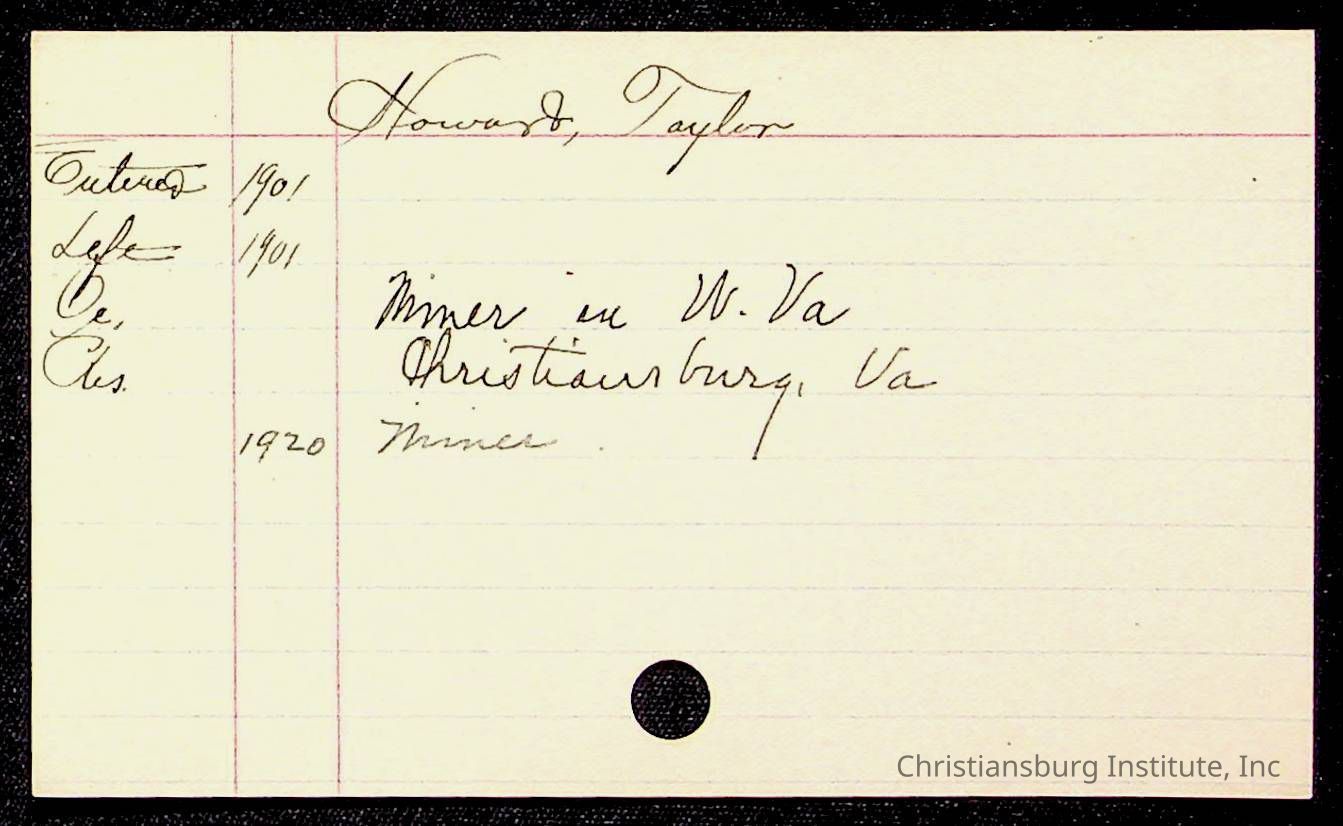 Howard, Taylor
Entered 1901
Left 1901
Oc. Miner in W. Va
Christiansburg, Va
1920 Miner.
Christiansburg Institute, Inc